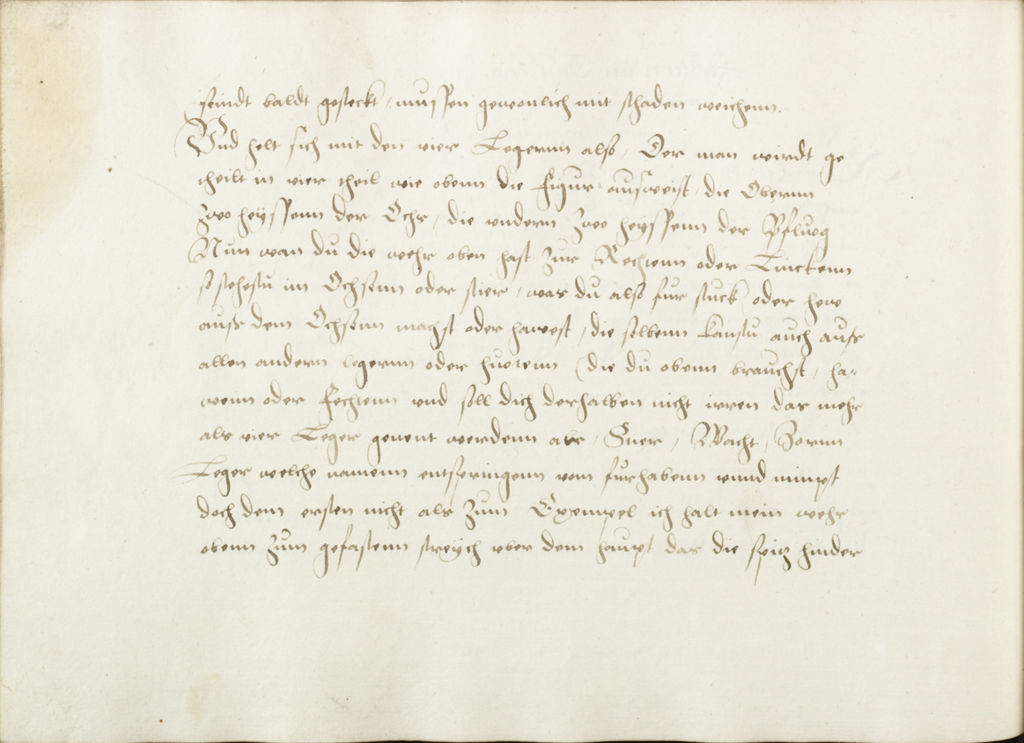 seindt baldt gesteckt, mussen gewonlich mit schaden weichenn.
Und helt sich mit den vier Legernn also, Der man wirdt ge
theilt in vier theil wie obenn die Figur ausweist, die Obernn
zwo heyssenn der Ochs, die undern zwo heyssenn der Pfluog
Nun wan du die wehr oben hast zur Rechtenn oder Linckenn
so stehestu im Ochsenn oder stier, was du also fur stuck oder hew
auss dem Ochsenn machst oder hawest, die selbenn kanstu auch auss
allen andern legernn oder huotenn (die du obenn brauchst, ha-
wenn oder fechtenn und soll dich derhalben nicht irren das mehr
als vier Leger genent werdenn als, Huer, Wacht, Zornn
Leger welche namenn entspringenn vom furhabenn unnd nimpt
doch dem ersten nicht als zum Exempel ich halt mein wehr
obenn zum gefastenn streych uber dem haupt das die spiz hinder